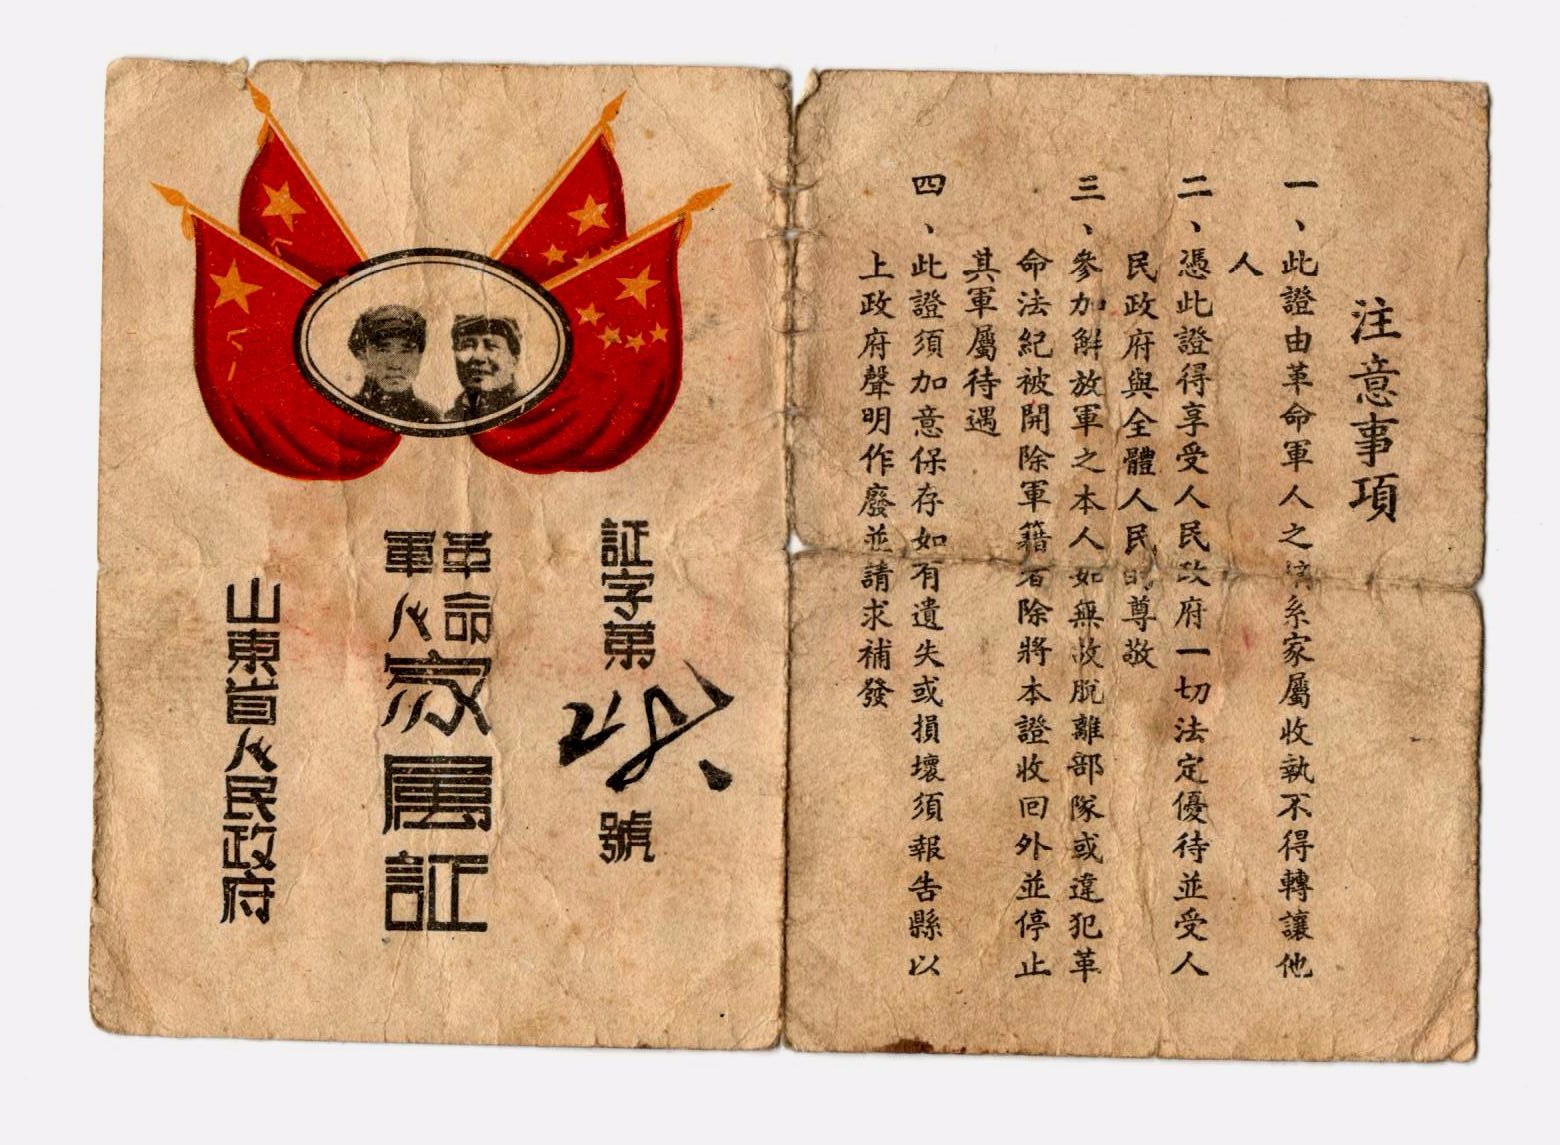 注意事項
一、此證由革命軍人之系家屬收執不得轉讓他
人
二、憑此證得享受人民政府一切法定優待並受人
民政府與全體人民的尊敬
三、參加解放軍之本人如無故脫離部隊或違犯革
命法紀被開除軍籍者除將本證收回外並停止
其軍屬待遇
四、此證須加意保存如有遺失或損壞須報告縣以
上政府聲明作廢並請求補發
八一
八一
証字第
號
革命
軍人
家属証
山東省人民政府